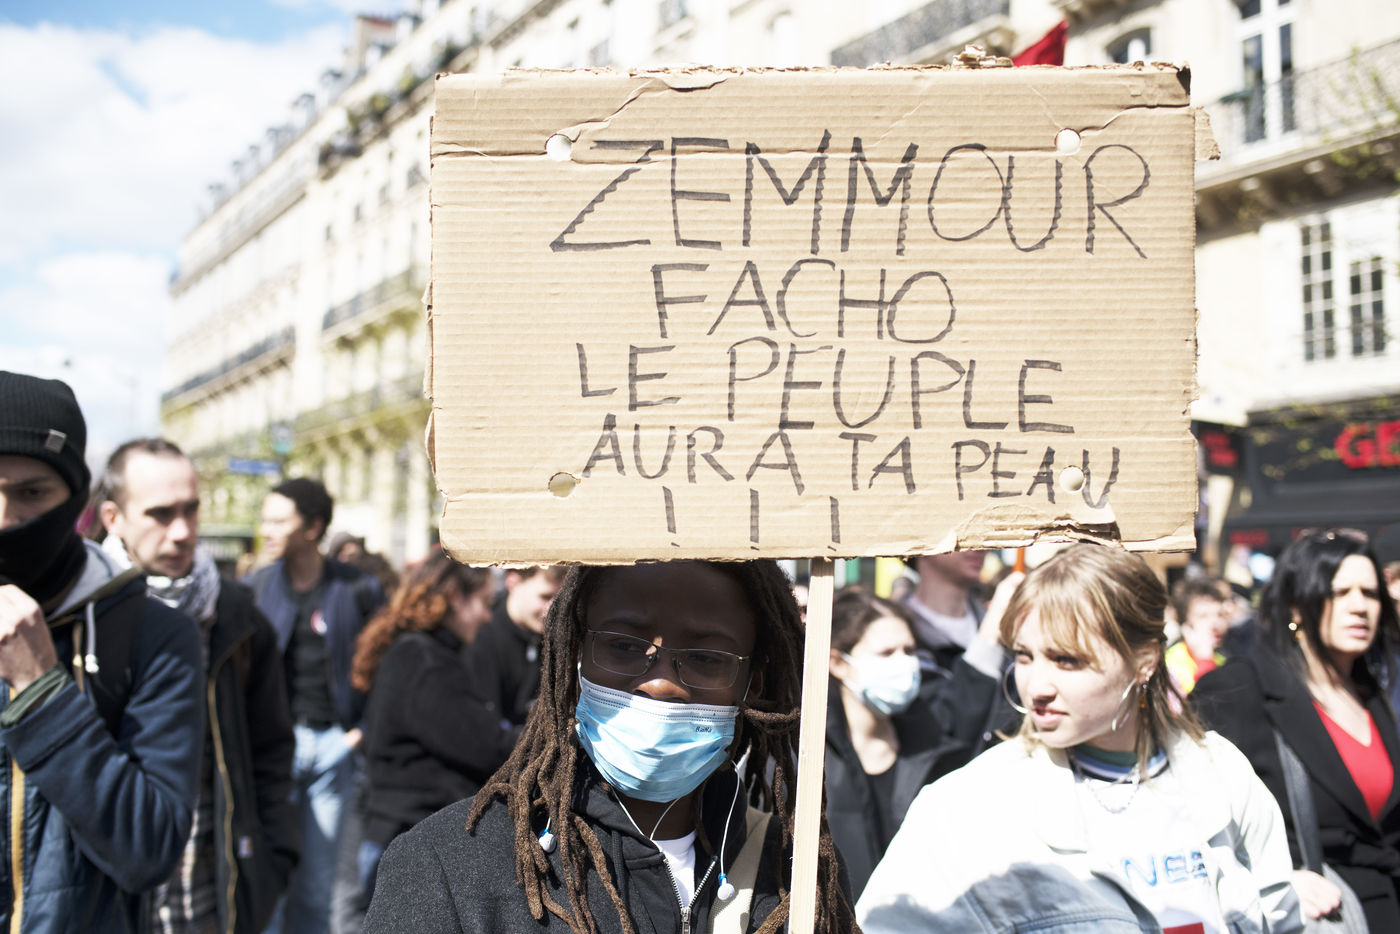 ZEMMOUR
FACHO
LE PEUPLE
AURA TA PEAU
! ! !